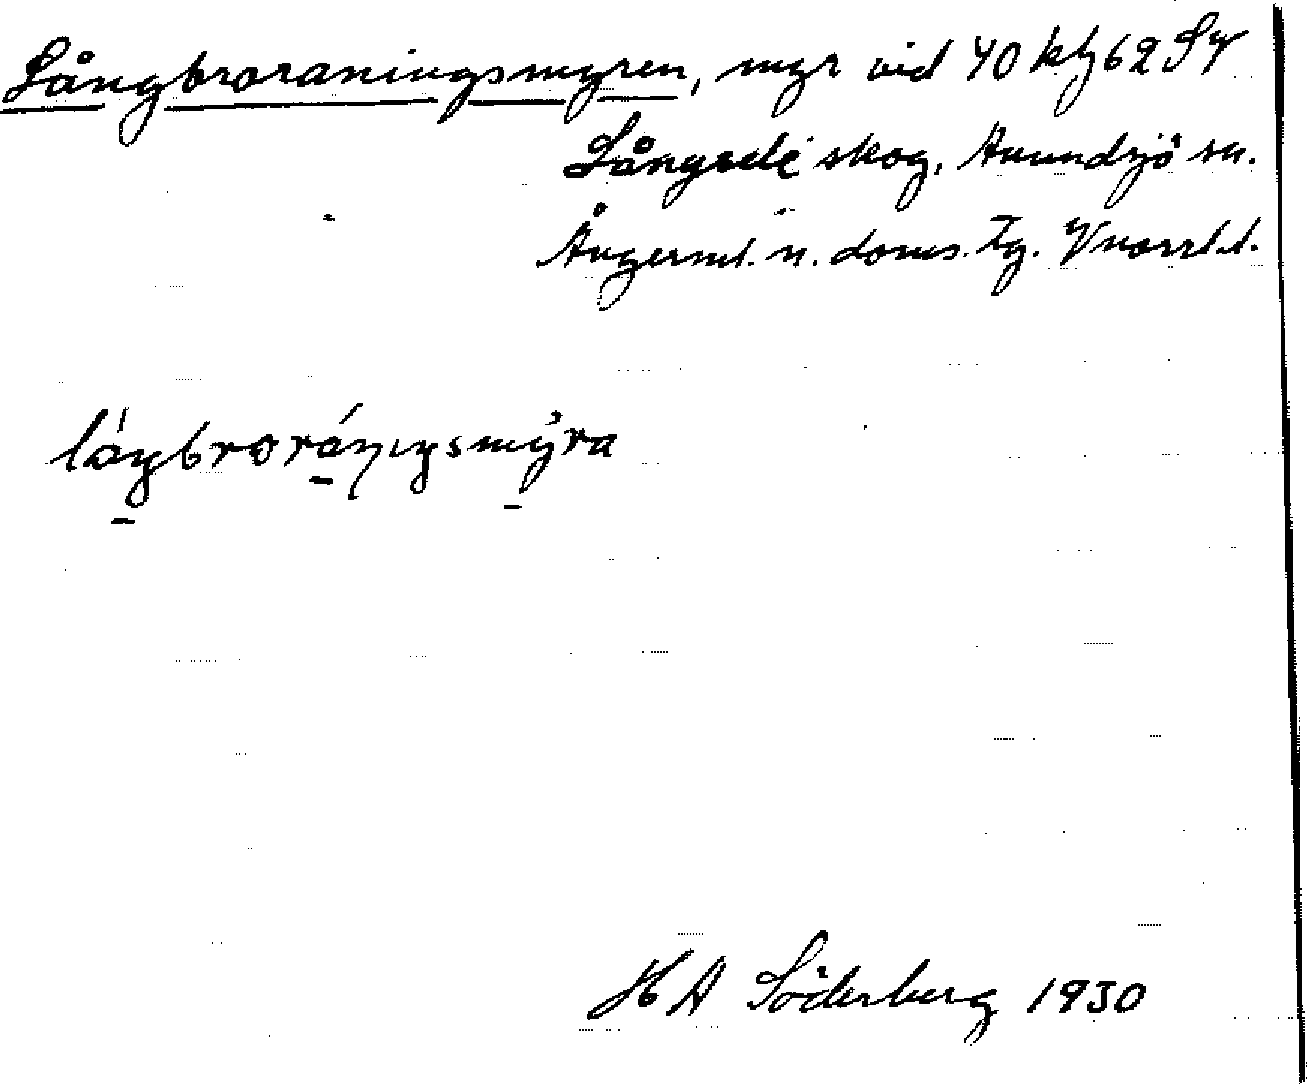 Långbroraningsmyren, myr vid 40 klz 62 SV
Långsele skog, Anundsjö sn.
Ångerml. n. doms. Tg. Vnorrl.l.
lågbroráŋıŋsmýra
H A Söderberg 1930